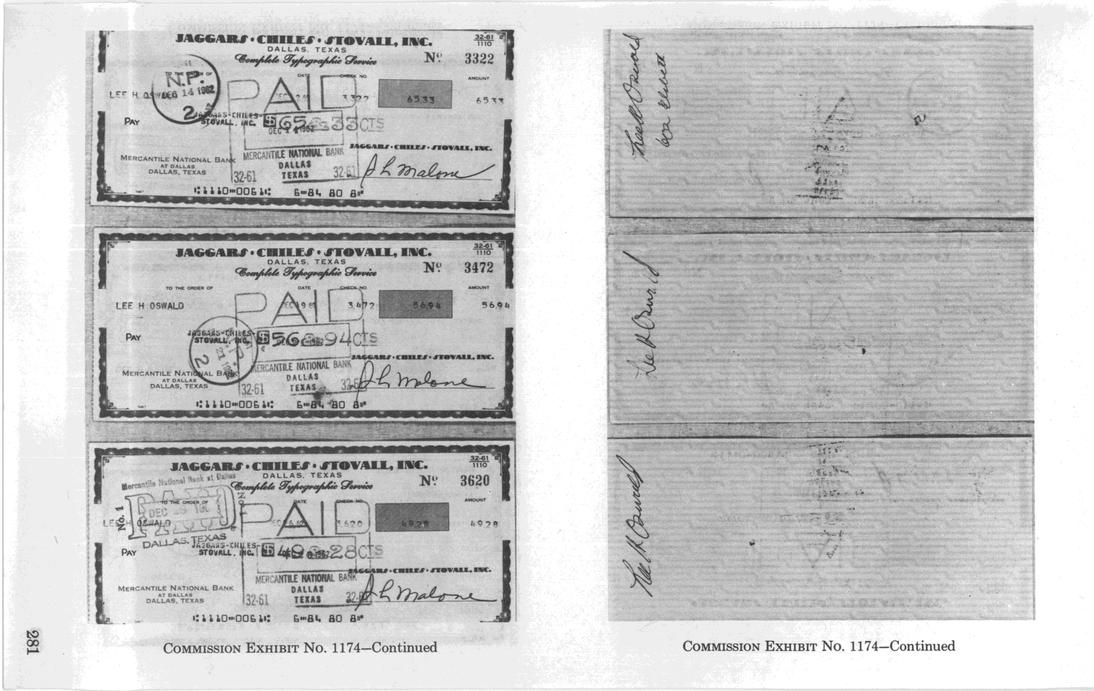 JAGGARS · CHILES · STOVALL, INC.
32-61
1110
DALLAS, TEXAS
Complete Typographic Service
No. 3322
N.P.
DEC 14 1962
2
DATE
CHECK NO.
AMOUNT
LEE H OSWALD
PAID
3322
65.33
65.33
PAY
JAGGARS-CHILES-
STOVALL, INC.
$65 33CTS
MERCANTILE NATIONAL BANK
AT DALLAS
DALLAS, TEXAS
MERCANTILE NATIONAL BANK
DALLAS
TEXAS
32-61
JAGGARS · CHILES · STOVALL, INC.
J L Malone
JAGGARS · CHILES · STOVALL, INC.
32-61
1110
DALLAS, TEXAS
Complete Typographic Service
No. 3472
TO THE ORDER OF
DATE
CHECK NO.
AMOUNT
LEE H OSWALD
PAID
3,472
56.94
56.94
PAY
JAGGARS-CHILES-
STOVALL, INC.
$56 94CTS
2
MERCANTILE NATIONAL BANK
AT DALLAS
DALLAS, TEXAS
MERCANTILE NATIONAL BANK
DALLAS
TEXAS
32-61
JAGGARS · CHILES · STOVALL, INC.
J L Malone
JAGGARS · CHILES · STOVALL, INC.
32-61
1110
DALLAS, TEXAS
Complete Typographic Service
No. 3620
Mercantile National Bank at Dallas
No. 1
PAID
TO THE ORDER OF
DATE
CHECK NO.
AMOUNT
LEE H OSWALD
PAID
3,620
49.28
49.28
DALLAS, TEXAS
PAY
JAGGARS-CHILES-
STOVALL, INC.
$49 28CTS
MERCANTILE NATIONAL BANK
AT DALLAS
DALLAS, TEXAS
MERCANTILE NATIONAL BANK
DALLAS
TEXAS
32-61
JAGGARS · CHILES · STOVALL, INC.
J L Malone
COMMISSION EXHIBIT No. 1174—Continued
281
Lee H Oswald
Lee H Oswald
Lee H Oswald
COMMISSION EXHIBIT No. 1174—Continued